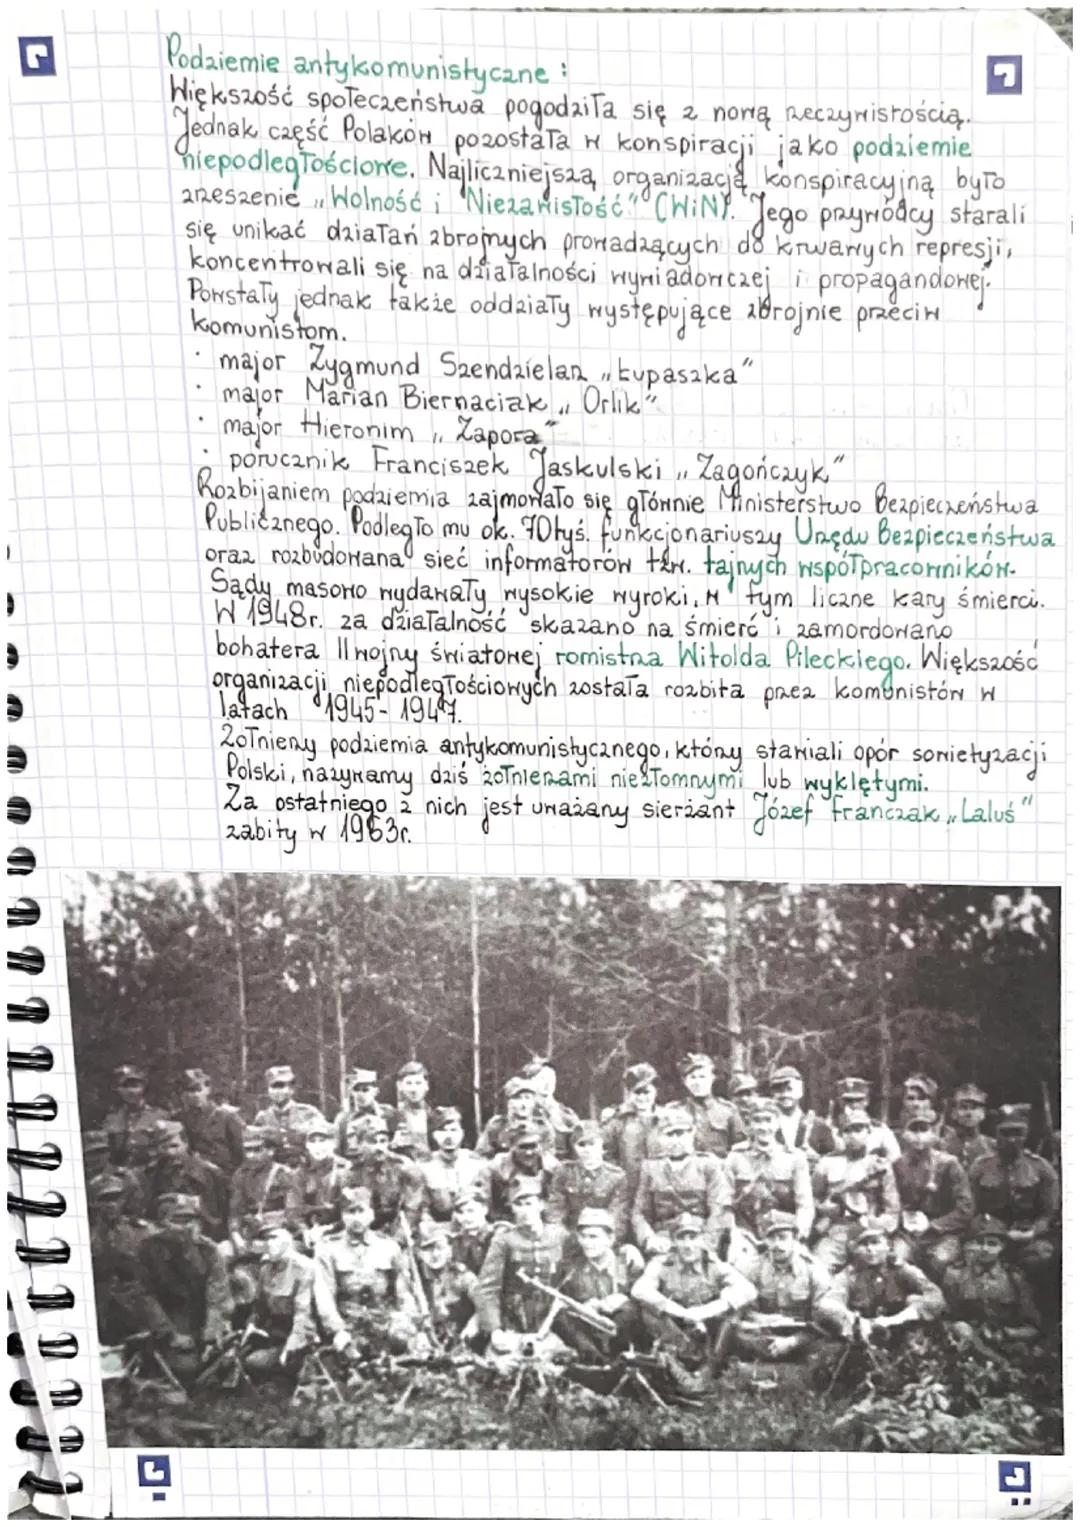 Podziemie antykomunistyczne :
Większość społeczeństwa pogodziła się z nową rzeczywistością.
Jednak część Polaków pozostała w konspiracji jako podziemie
niepodległościowe. Najliczniejszą organizacją konspiracyjną było
zrzeszenie „Wolność i Niezawisłość" (WiN). Jego przywódcy starali
się unikać działań zbrojnych prowadzących do krwawych represji,
koncentrowali się na działalności wywiadowczej i propagandowej.
Powstały jednak także oddziały występujące zbrojnie przeciw
komunistom.
· major Zygmund Szendzielarz „Łupaszka"
· major Marian Biernaciak „Orlik"
· major Hieronim „Zapora"
· porucznik Franciszek Jaskulski „Zagończyk"
Rozbijaniem podziemia zajmowało się głównie Ministerstwo Bezpieczeństwa
Publicznego. Podległo mu ok. 70tyś. funkcjonariuszy Urzędu Bezpieczeństwa
oraz rozbudowana sieć informatorów tzw. tajnych współpracowników.
Sądy masowo wydawały wysokie wyroki, w tym liczne kary śmierci.
W 1948r. za działalność skazano na śmierć i zamordowano
bohatera II wojny światowej romistrza Witolda Pileckiego. Większość
organizacji niepodległościowych została rozbita przez komunistów w
latach 1945-1947.
Żołnierzy podziemia antykomunistycznego, którzy stawiali opór sowietyzacji
Polski, nazywamy dziś żołnierzami niezłomnymi lub wyklętymi.
Za ostatniego z nich jest uważany sierżant Józef Franczak „Laluś"
zabity w 1963r.